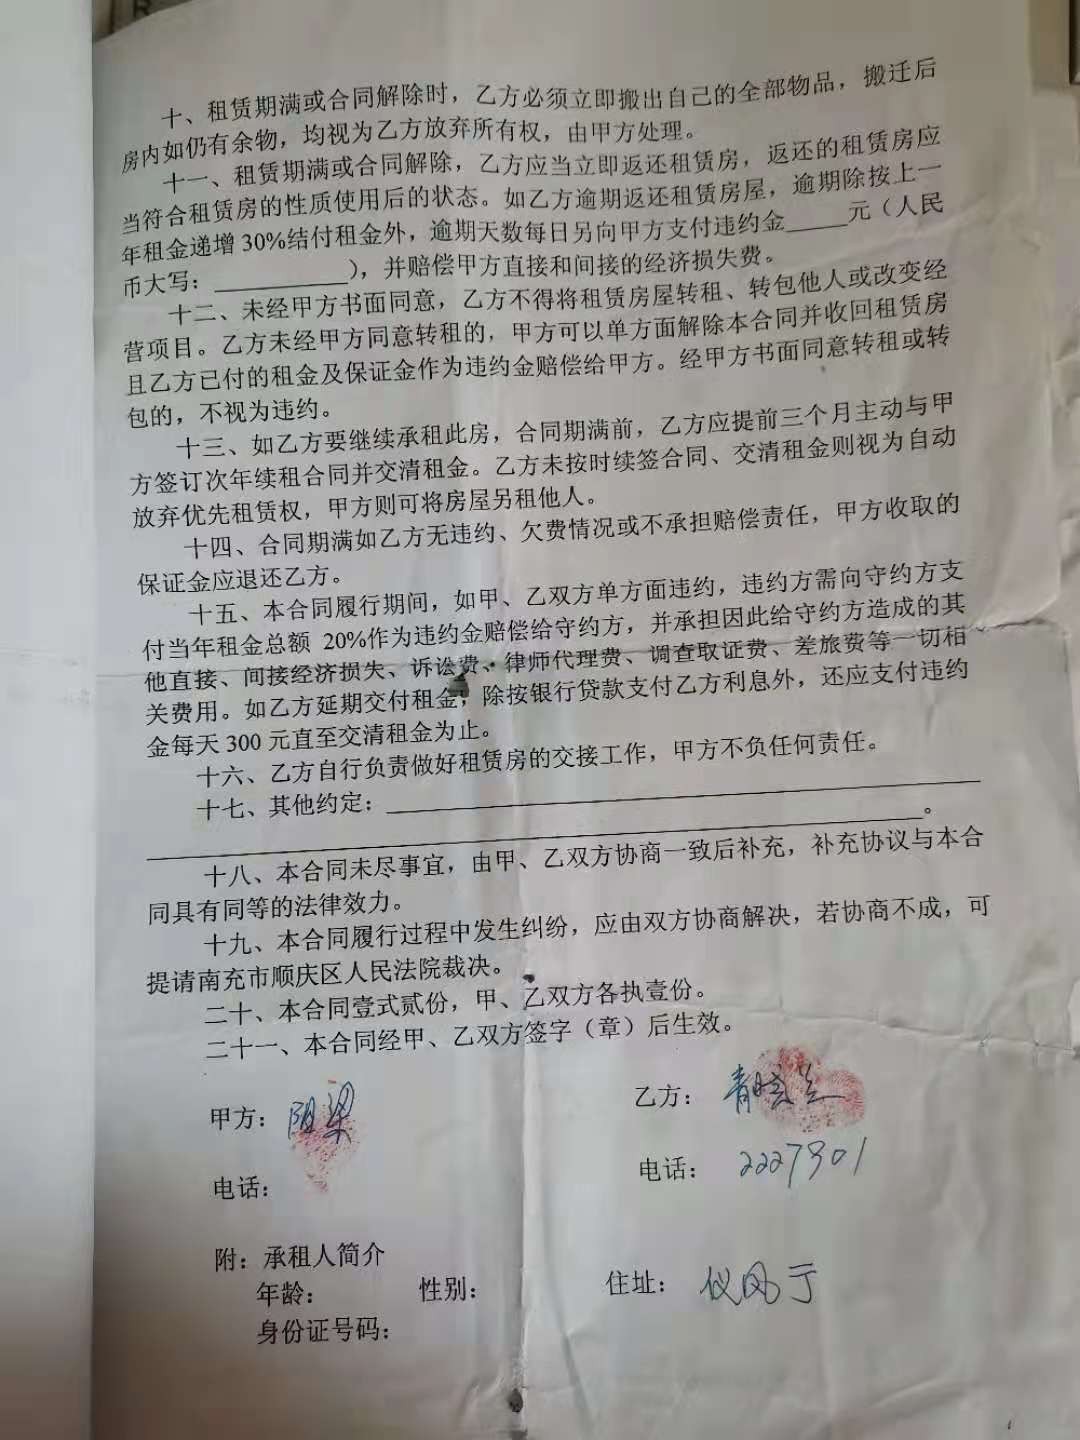 十、租赁期满或合同解除时，乙方必须立即搬出自己的全部物品，搬迁后
房内如仍有余物，均视为乙方放弃所有权，由甲方处理。
十一、租赁期满或合同解除，乙方应当立即返还租赁房，返还的租赁房应
当符合租赁房的性质使用后的状态。如乙方逾期返还租赁房屋，逾期除按上一
年租金递增30%结付租金外，逾期天数每日另向甲方支付违约金_____元（人民
币大写：___________），并赔偿甲方直接和间接的经济损失费。
十二、未经甲方书面同意，乙方不得将租赁房屋转租、转包他人或改变经
营项目。乙方未经甲方同意转租的，甲方可以单方面解除本合同并收回租赁房
且乙方已付的租金及保证金作为违约金赔偿给甲方。经甲方书面同意转租或转
包的，不视为违约。
十三、如乙方要继续承租此房，合同期满前，乙方应提前三个月主动与甲
方签订次年续租合同并交清租金。乙方未按时续签合同、交清租金则视为自动
放弃优先租赁权，甲方则可将房屋另租他人。
十四、合同期满如乙方无违约、欠费情况或不承担赔偿责任，甲方收取的
保证金应退还乙方。
十五、本合同履行期间，如甲、乙双方单方面违约，违约方需向守约方支
付当年租金总额 20%作为违约金赔偿给守约方，并承担因此给守约方造成的其
他直接、间接经济损失、诉讼费、律师代理费、调查取证费、差旅费等一切相
关费用。如乙方延期交付租金，除按银行贷款支付乙方利息外，还应支付违约
金每天 300 元直至交清租金为止。
十六、乙方自行负责做好租赁房的交接工作，甲方不负任何责任。
十七、其他约定：
。
十八、本合同未尽事宜，由甲、乙双方协商一致后补充，补充协议与本合
同具有同等的法律效力。
十九、本合同履行过程中发生纠纷，应由双方协商解决，若协商不成，可
提请南充市顺庆区人民法院裁决。
二十、本合同壹式贰份，甲、乙双方各执壹份。
二十一、本合同经甲、乙双方签字（章）后生效。
甲方： 阻梁 乙方： 青晓兰
电话： 电话： 2227901
附：承租人简介
年龄： 性别： 住址： 仪凤亍
身份证号码：